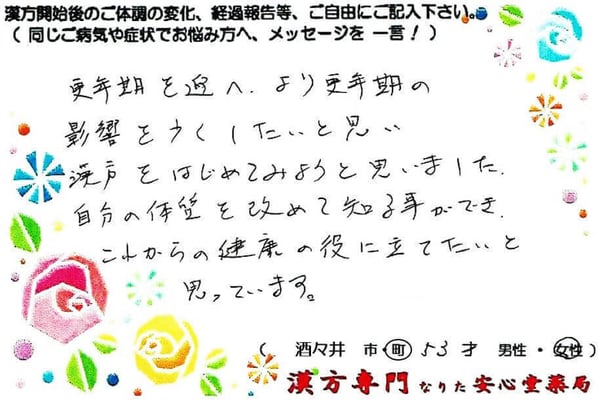 漢方開始後のご体調の変化、経過報告等、ご自由にご記入下さい。
（同じご病気や症状でお悩み方へ、メッセージを一言！）
更年期を迎へ、より更年期の
影響を少くしたいと思い
漢方をはじめてみようと思いました。
自分の体質を改めて知る事ができ、
これからの健康の役に立てたいと
思っています。
（ 酒々井 市・町 53才 男性・女性）
漢方専門なりた安心堂薬局